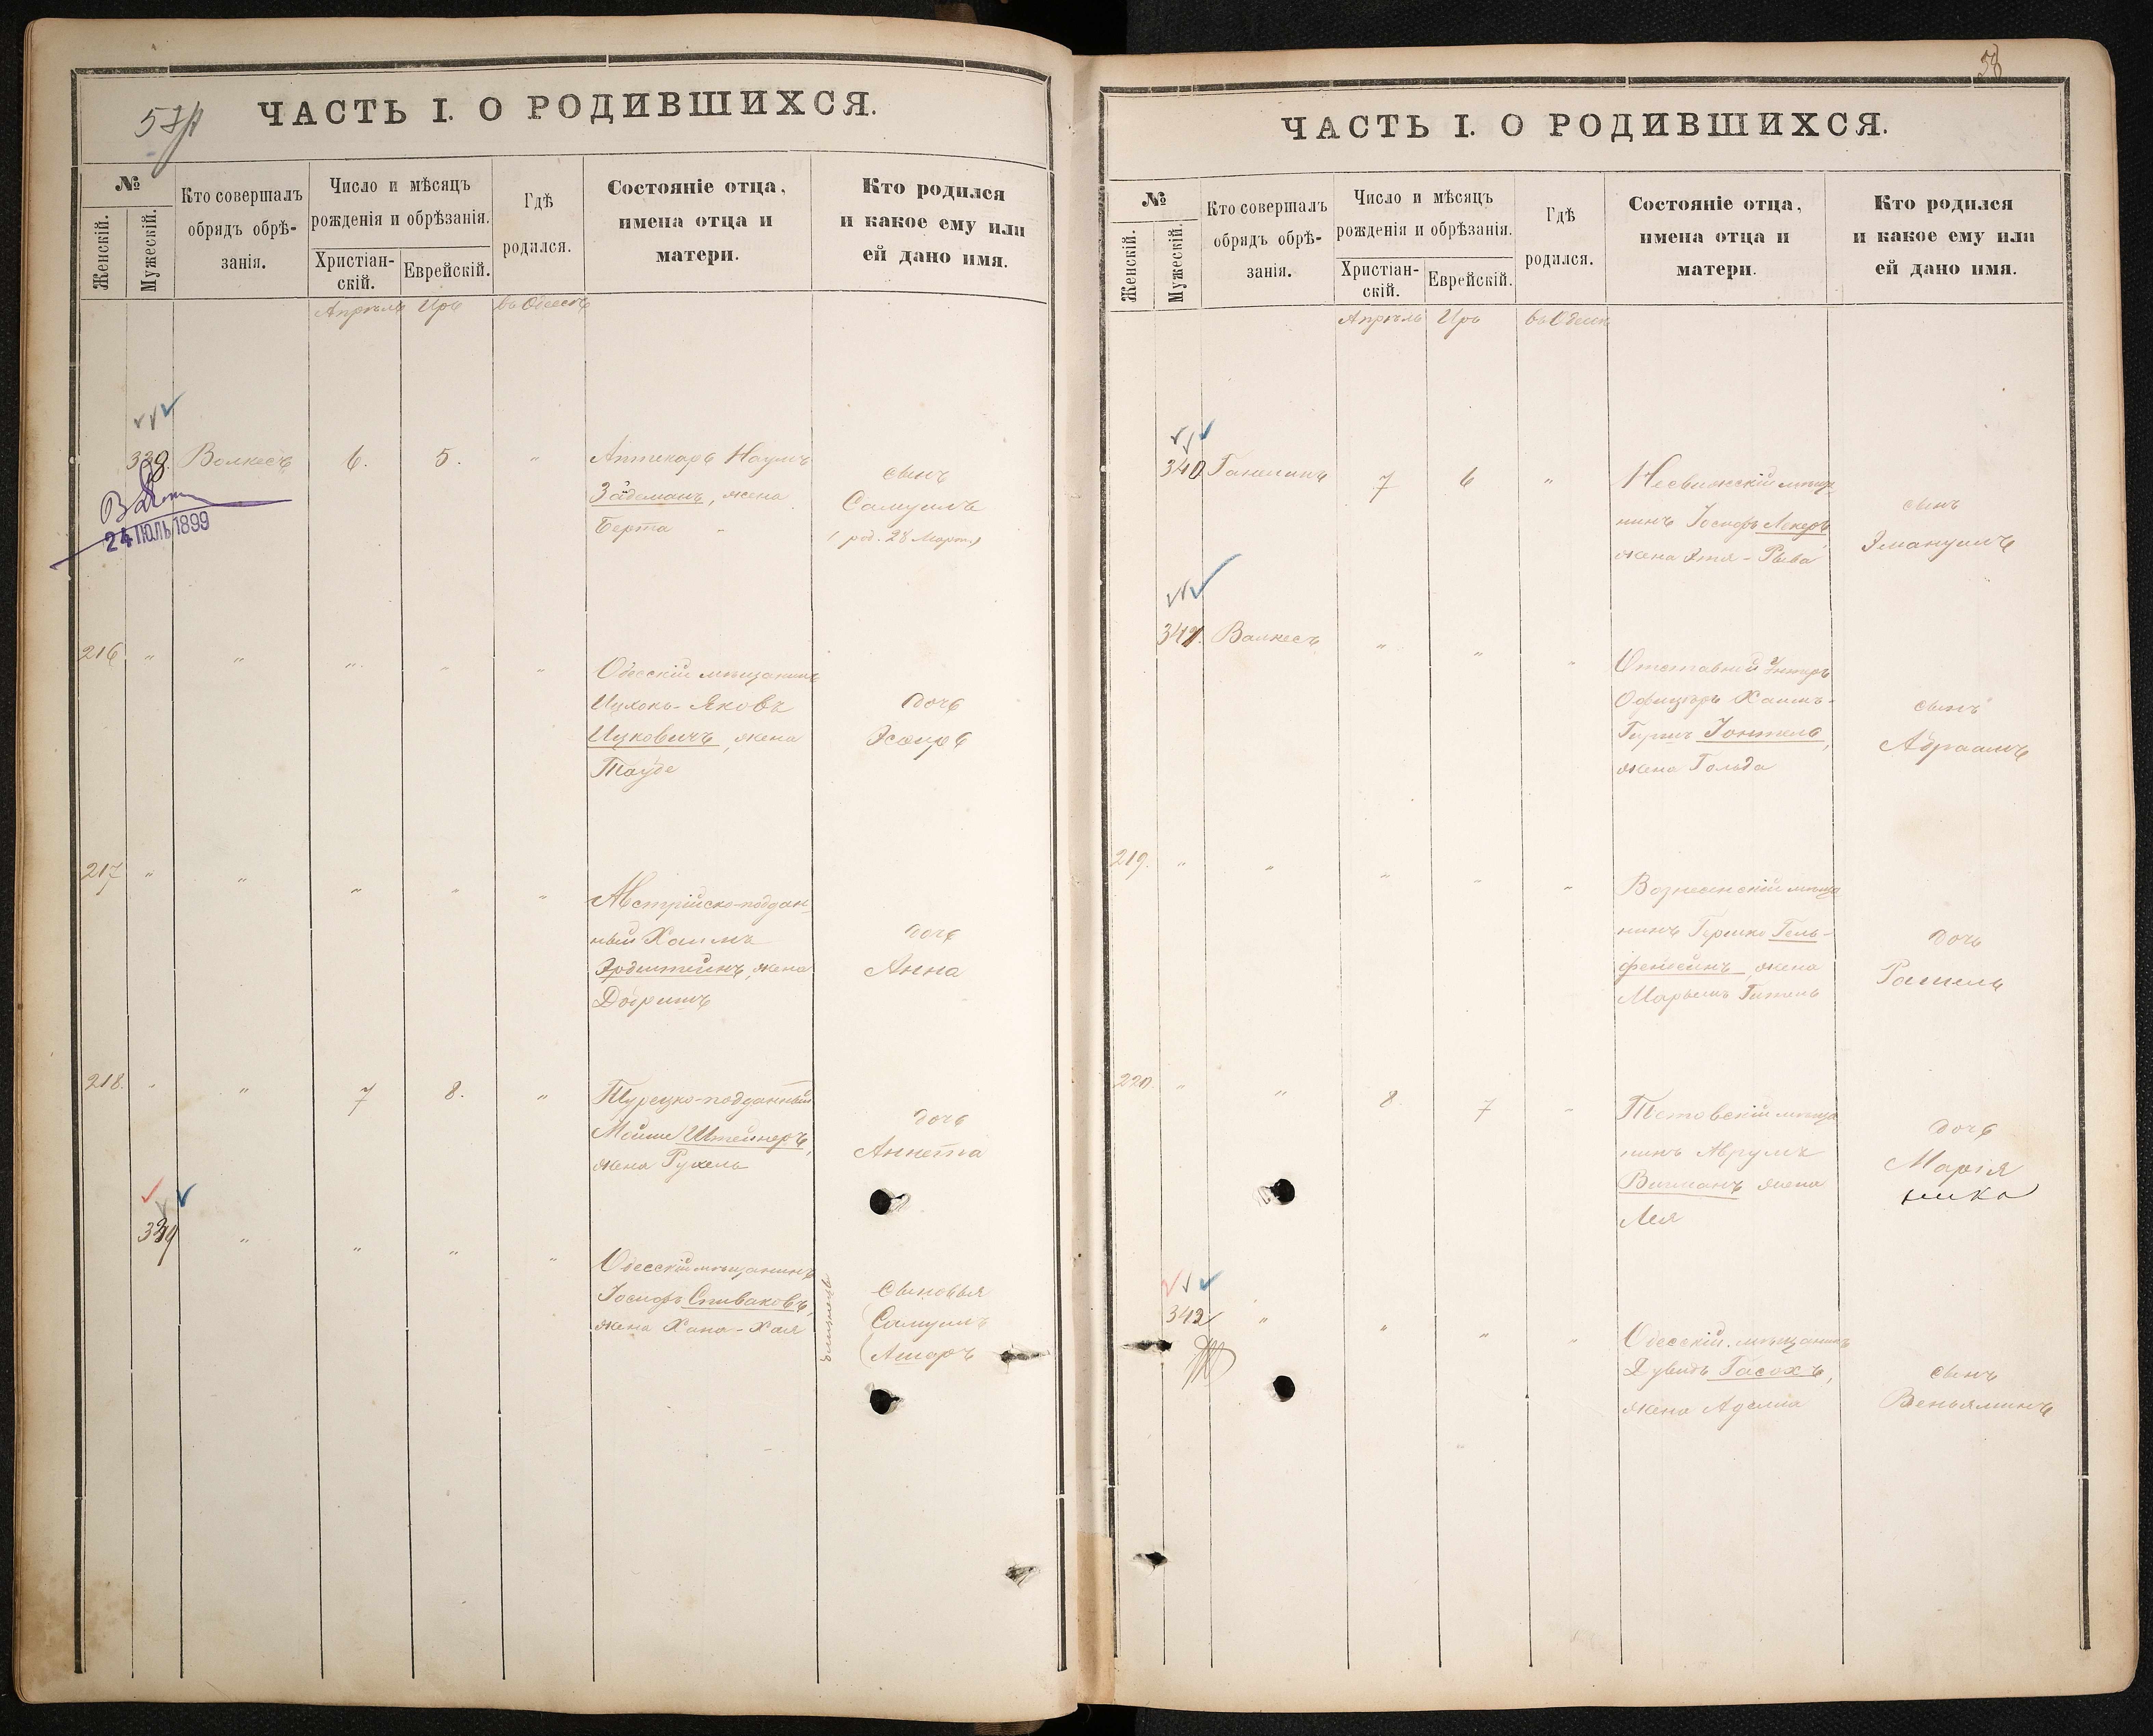 57
ЧАСТЬ I. О РОДИВШИХСЯ.
№
Женскій.
Мужескій.
Кто совершалъ
обрядъ обрѣ-
занія.
Число и мѣсяцъ
рожденія и обрѣзанія.
Христіан-
скій.
Еврейскій.
Гдѣ
родился.
Состояніе отца,
имена отца и
матери.
Кто родился
и какое ему или
ей дано имя.
Апрѣль Иръ въ Одессѣ
338. Волкесъ 6. 5. "
Аптекарь Наумъ
Зайдеманъ, жена
Берта
сынъ
Самуилъ
(род. 28 Марта)
24 ІЮЛЬ 1899
216. " " " " "
Одесскій мѣщанинъ
Ицхокъ-Яковъ
Ицковичъ, жена
Таубе
дочь
Эсѳирь
217 " " " " "
Австрійско-поддан-
ный Хаимъ
жена
дочь
Анна
218. " " 7 8. "
Турецко-подданный
Мойше Штейнеръ,
жена Рухель
дочь
Аннета
339 " " " "
Одесскій мѣщанинъ
Іосифъ Спиваковъ,
жена Хана-Хая
близнецы
сыновья
Самуилъ
Ашеръ
58
ЧАСТЬ I. О РОДИВШИХСЯ.
№
Женскій.
Мужескій.
Кто совершалъ
обрядъ обрѣ-
занія.
Число и мѣсяцъ
рожденія и обрѣзанія.
Христіан-
скій.
Еврейскій.
Гдѣ
родился.
Состояніе отца,
имена отца и
матери.
Кто родился
и какое ему или
ей дано имя.
Апрѣль Иръ въ Одессѣ
340 Ганелинъ 7 6 "
Несвижскій мѣща-
нинъ Іосифъ Лекеръ,
жена Этя-Рыва
сынъ
Эмануилъ
341. Волкесъ " " "
Отставной Унтеръ
Офицеръ Хаимъ-
Гиршъ Іонтель,
жена Гольда
сынъ
Абраамъ
219. " " " " "
Вознесенскій мѣща
нинъ Гершко Гель-
фенбейнъ, жена
Марьемъ Гитель
дочь
Рахиль
220. " " 8. 7 "
мѣща
нинъ Аврумъ
Вигманъ жена
Лея
дочь
Марія
342 " " " "
Одесскій мѣщанинъ
Дувидъ Гасохъ,
жена Аделиа
сынъ
Веньяминъ